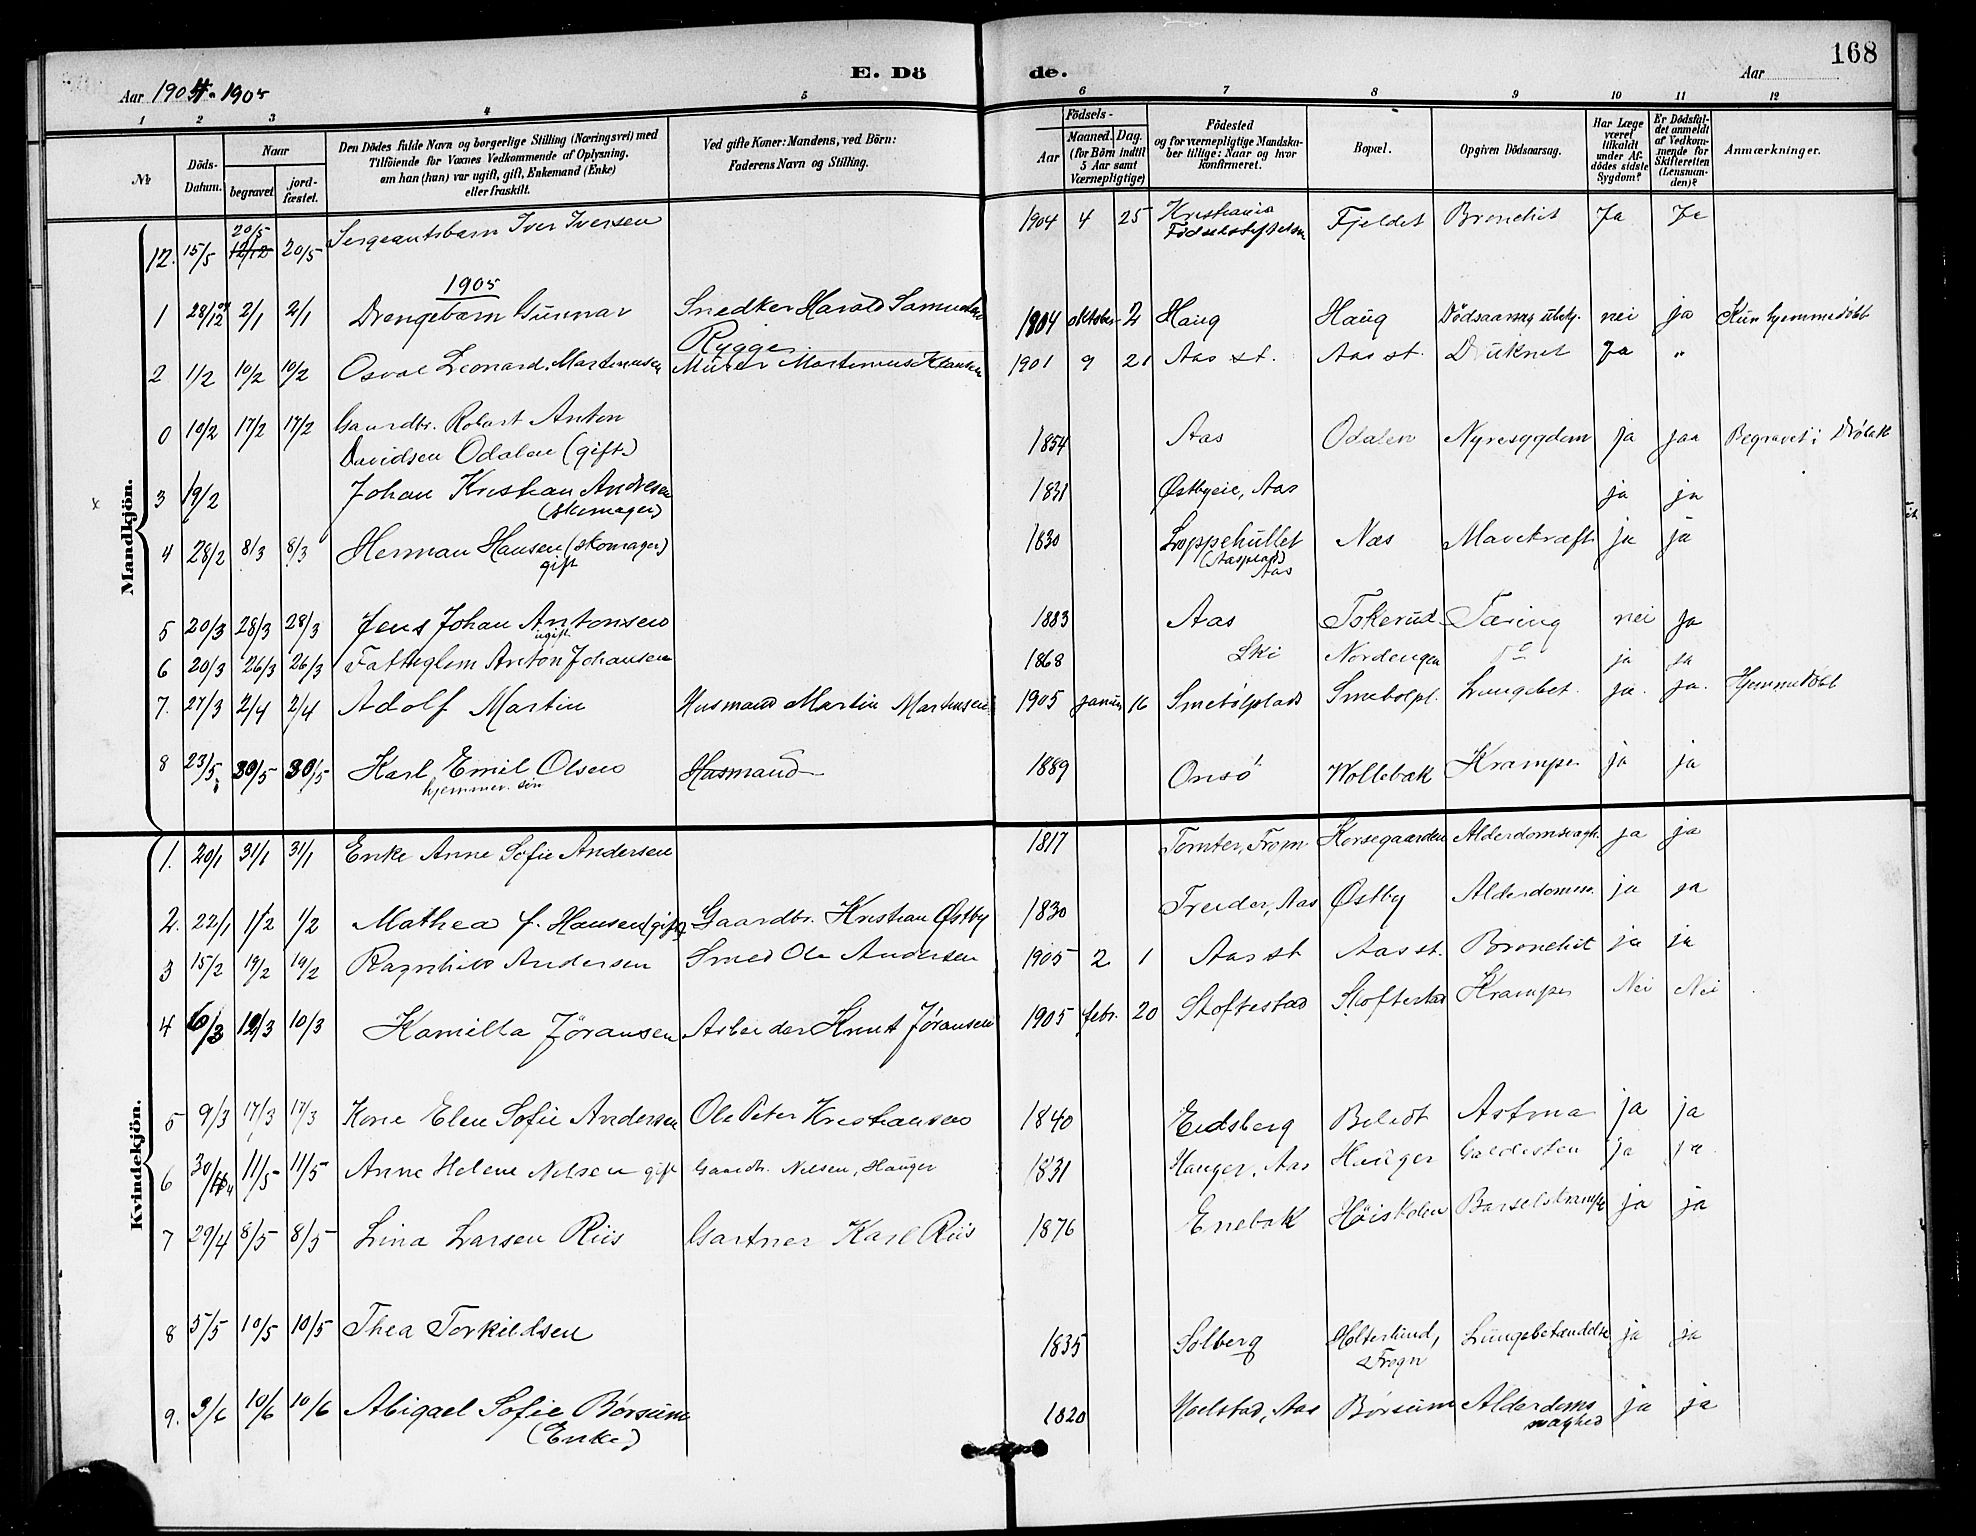 E. Dö de. 168
Aar 1904-1905 Aar
1 2 3 4 5 6 7 8 9 10 11 12
Nr
Döds-Datum.
Naar
begravet jordfæstet.
Den Dödes fulde Navn og borgerlige Stilling (Næringsvei) med
Tilföiende for Voxnes Vedkommende af Oplysning,
om han (hun) var ugift, gift, Enkemand (Enke)
eller fraskilt.
Ved gifte Koner: Mandens, ved Börn:
Faderens Navn og Stilling.
Födsels-
Aar Maaned. Dag.
(for Börn indtil
5 Aar samt
Værnepligtige)
Födested
og for værnepligtige Mandskaber tillige: Naar og hvor
konfirmeret.
Bopæl.
Opgiven Dödsaarsag.
Har Læge
været
tilkaldt
under Afdödes sidste
Sygdom?
Er Dödsfaldet anmeldt
af Vedkommende for
Skifteretten
(Lensmanden)?
Anmærkninger.
Mandkjön.
12. 15/5 20/5 20/5 Sergeantsbarn Iver Iversen 1904 4 25 Kristiania Fødselsstiftelsen Fjeldet Bronchit Ja Ja
1905
1 28/12 04 2/1 2/1 Drengebarn Gunnar Snedker Harald Samuelsen Rygge 1904 oktober 2 Haug Haug Dödsaarsag ubekj. nei ja Kun hjemmedøbt
2 1/2 10/2 10/2 Osval Leonard Martinusen Murer Martinius Klausen 1901 9 21 Aas st. Aas st. Druknet Ja "
0 10/2 17/2 17/2 Gaardbr. Robert Anton
Davidsen Odalen (gift) 1854 Aas Odalen Nyresygdom ja jaa Begravet i Drøbak
x 3 19/2 Johan Kristian Andresen
(skomager) 1831 Østbyeie, Aas ja ja
4 28/2 8/3 8/3 Herman Hansen (skomager)
gift 1830 Loppehullet Aas Næs Mavekræft ja ja
5 20/3 28/3 28/3 Jens Johan Antonsen
ugift 1883 Aas Tokerud Tæring nei ja
6 20/3 26/3 26/3 Fattiglem Anton Johansen 1868 Ski Nordengen do ja ja
7. 27/3 2/4 2/4 Adolf Martin Husmand Martin Martinsen 1905 januar 16 Smebølplads Smebølpl. Lungebet. ja. ja. Hjemmedøbt
8 23/5 30/5 30/5 Karl Emil Olsen
hjemmev. søn Husmand 1889 Onsø Wollebæk Krampe ja ja
Kvindekjön.
1. 20/1 31/1 31/1 Enke Anne Sofie Andersen 1817 Tomter, Fron Korsegaarden Alderdomssvagh. ja ja
2. 22/1 1/2 1/2 Mathea f. Hansen (gift) Gaardbr. Kristian Østby 1830 Treider, Aas Østby Alderdomss. ja ja
3 15/2 19/2 19/2 Ragnhild Andersen Smed Ole Andersen 1905 2 1 Aas st Aas st. Bronchit ja ja
4 6/3 12/3 10/3 Kamilla Jöransen Arbeider Knut Jöransen 1905 febr. 20 Skoftestad Skoftestad Krampe Nei Nei
5 9/3 17/3 17/3 Kone Elen Sofie Andersen Ole Peter Kristiansen 1840 Eidsberg Astma ja ja
6 30/4 11/5 11/5 Anne Helene Nilsen gift Gaardbr. Nilsen, Hauger 1831 Hauger, Aas Hauger Galdesten ja ja
7 29/4 8/5 8/5 Lina Larsen Riis Gartner Karl Riis 1876 Enebak Høiskolen Barselskrampe ja ja
8 5/5 10/5 10/5 Thea Torkildsen 1835 Solberg Holterlund, Frogn Lungebetændelse ja ja
9. 3/6 10/6 10/6 Abigael Sofie Børsum
(Enke) 1820 Holstad, Aas Børsum Alderdoms
svaghed ja ja